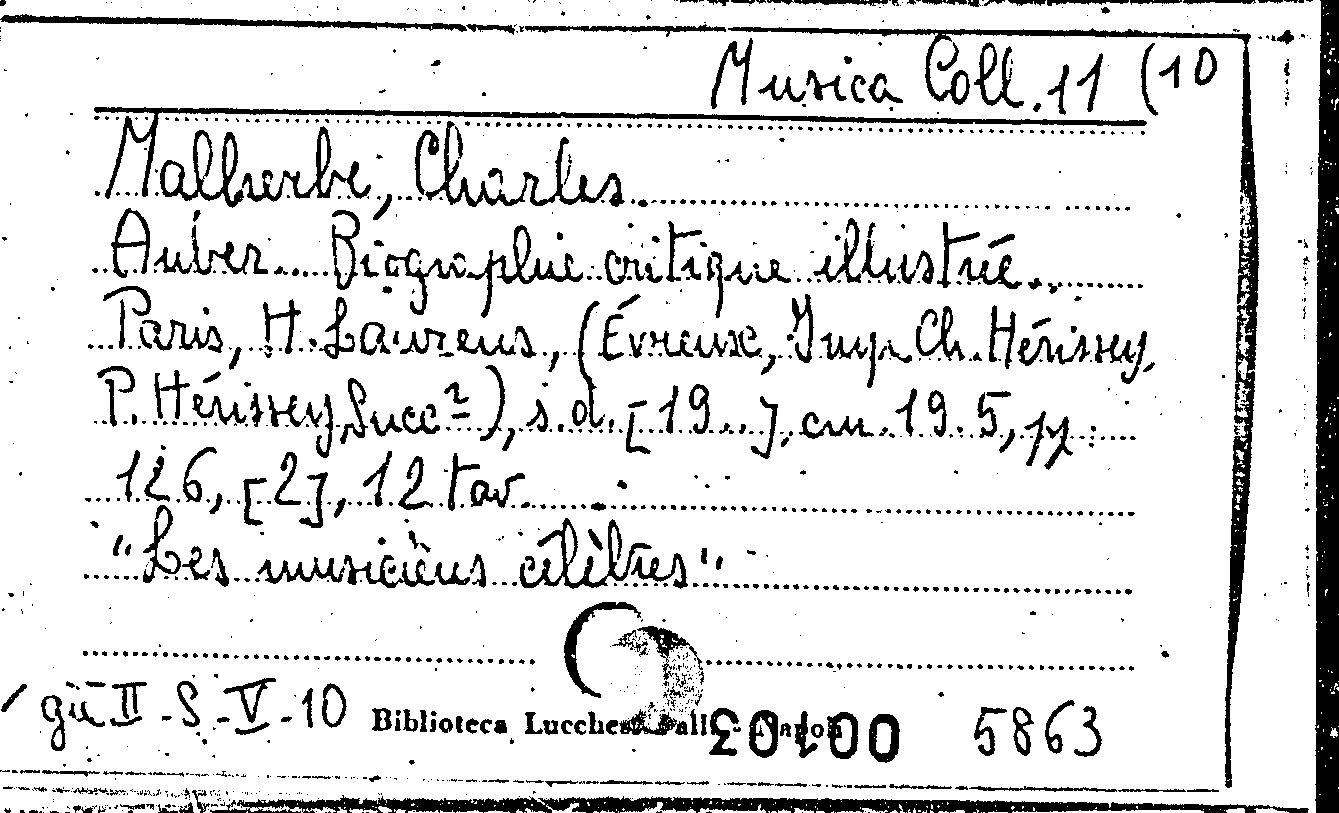 Musica Coll. 11 (10
Malherbe, Charles.
Auber. Biographie critique illustrée.
Paris, H. Laurens, (Évreux, Imp. Ch. Hérissey,
P. Hérissey, Succ.ʳ), s. d. [19..], cm. 19.5, pp.
126, [2], 12 tav.
"Les musiciens célèbres"
già II - S - V - 10 Biblioteca Lucchesi Palli - Napoli 5863